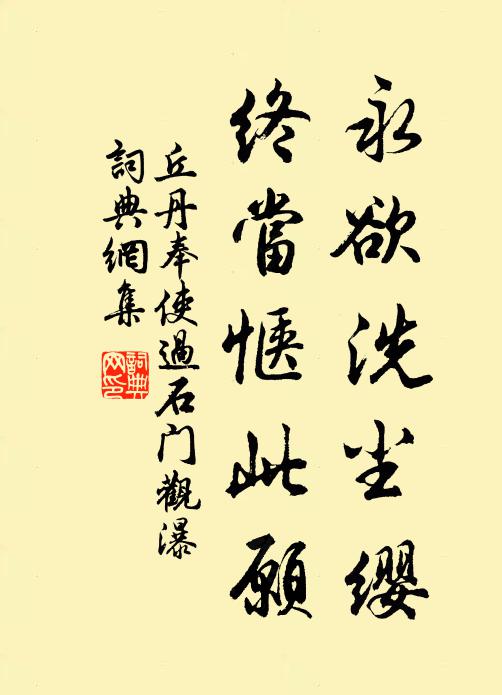 永欲洗尘缨
终當惬此願
丘丹奉使過石门觀瀑
詞典網集
詞典网印